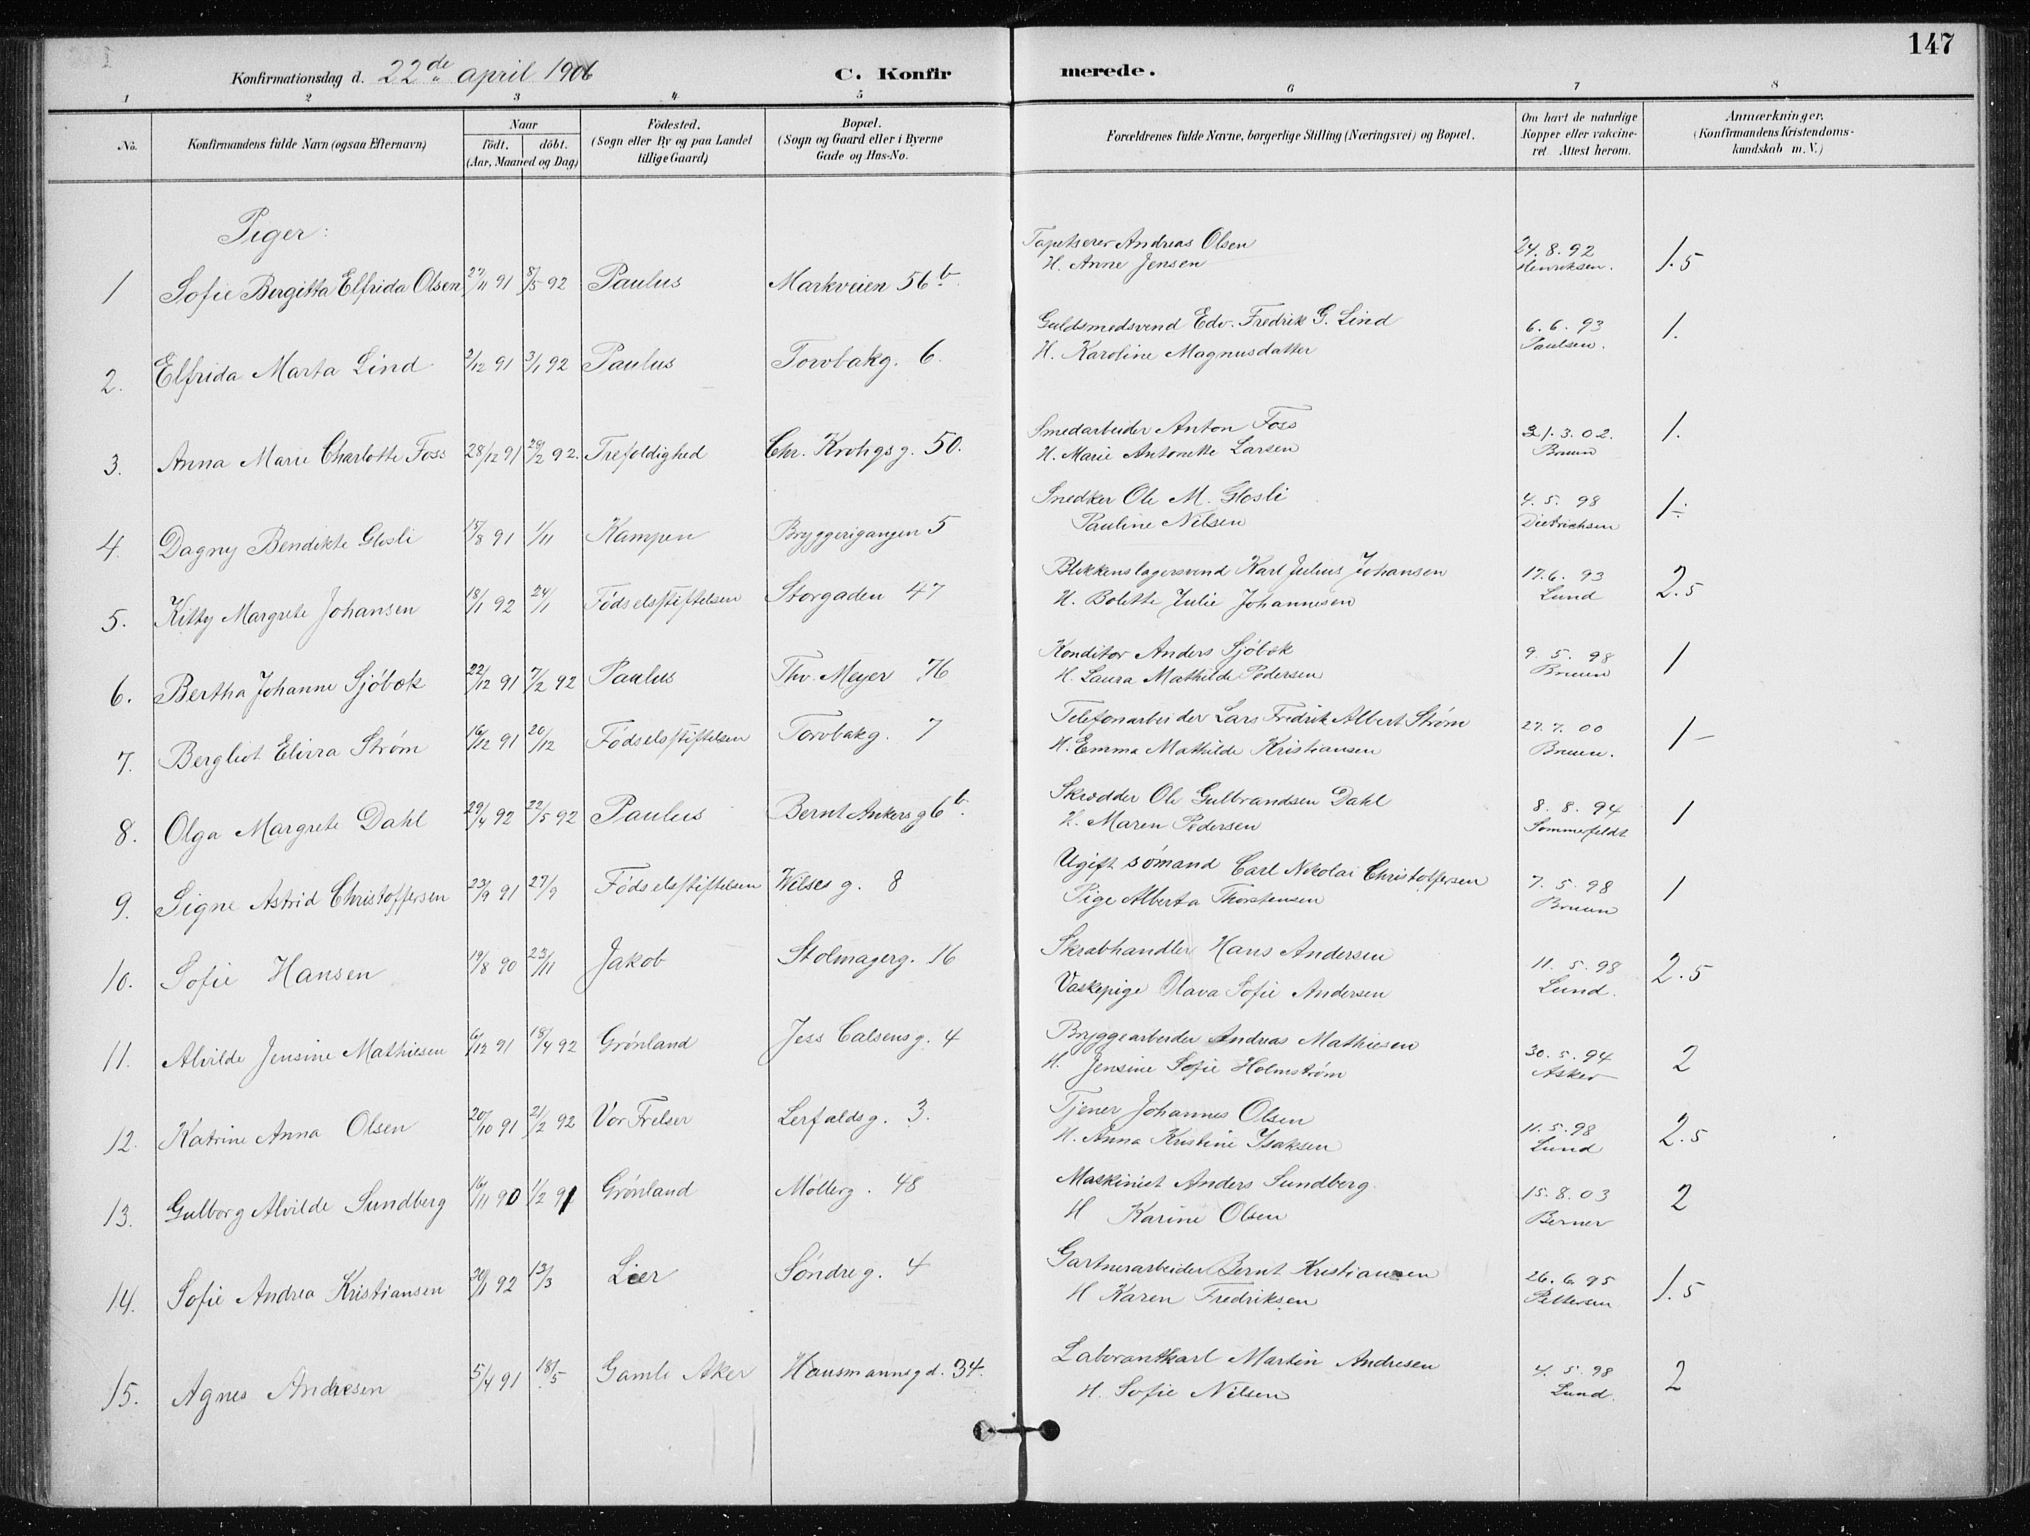 147
Konfirmationsdag d. 22de april 1906 C. Konfirmerede.
1 2 3 4 5 6 7 8
No. Konfirmandens fulde Navn (ogsaa Efternavn) Naar födt. döbt. (Aar, Maaned og Dag) Födested. (Sogn eller By og paa Landet tillige Gaard) Bopæl. (Sogn og Gaard eller i Byerne Gade og Hus-No. Forældrenes fulde Navne, borgerlige Stilling (Næringsvei) og Bopæl. Om havt de naturlige Kopper eller vakcineret. Attest herom. Anmærkninger. (Konfirmandens Kristendomskundskab m. V.)
Piger:
1 Sofie Bergitta Elfrida Olsen 27/11 91 8/5 92 Paulus Markveien 56b. Tapetserer Andreas Olsen 24.8.92 1.5
H. Anne Jensen Henriksen.
2. Elfrida Marta Lind 2/12 91 3/1 92 Paulus Torvbakg. 6. Guldsmedsvend Edv. Fredrik G. Lind 6.6.93 1.
H. Karoline Magnusdatter Paulsen.
3. Anna Marie Charlotte Foss 28/12 91 29/2 92. Trefoldighed Chr. Krohgsg. 50. Smedarbeider Anton Foss 21.3.02. 1.
H. Marie Antonette Larsen Bruun
4. Dagny Bendikte Glosli 15/8 91 1/11 Kampen Bryggerigangen 5 Snedker Ole M. Glosli 4.5.98 1÷
Pauline Nilsen Dietrichsen
5. Kitty Margrete Johansen 18/1 92 24/1 Fødselsstiftelsen Storgaden 47 Blikkenslagersvend Karl Julius Johansen 17.6.93 2.5
H. Bolette Julie Johannesen Lund
6. Bertha Johanne Sjöbok 22/12 91 7/2 92 Paulus Thv. Meyer 76 Konditor Anders Sjöbok 9.5.98 1
H. Laura Mathilde Pedersen Bruun
7. Bergliot Elvira Strøm 16/12 91 20/12 Fødselsstiftelsen Torvbakg. 7 Telefonarbeider Lars Fredrik Albert Strøm 27.7.00 1-
H. Emma Mathilde Kristiansen Bruun.
8. Olga Margrete Dahl 29/4 92 22/5 92 Paulus Bernt Ankersg 6b. Skrædder Ole Gulbrandsen Dahl 8.8.94 1
H. Maren Pedersen Sommerfeldt
9. Signe Astrid Christoffersen 23/9 91 27/9 Fødselsstiftelsen Wilses g. 8 Ugift sømand Carl Nikolai Christoffersen 7.5.98 1
Pige Alberta Thorstensen Bruun
10. Sofie Hansen 19/8 90 23/11 Jakob Stolmagerg. 16 Skrabhandler Hans Andersen 11.5.98 2.5
Vaskepige Olava Sofie Andersen Lund.
11. Alvilde Jensine Mathiesen 6/12 91 18/4 92 Grønland Jess Calsensg. 4 Bryggearbeider Andreas Mathiesen 30.5.94 2
H. Jensine Sofie Holmstrøm Asker
12. Katrine Anna Olsen 20/10 91 21/2 92 Vor Frelser Lerfaldsg. 3. Tjener Johannes Olsen 11.5.98 2.5
H. Anna Kristine Isaksen Lund
13. Gulborg Alvilde Sundberg 16/11 90 1/2 91 Grønland Møllerg. 48 Maskinist Anders Sundberg 15.8.03 2
H Karine Olsen Berner
14. Sofie Andrea Kristiansen 20/1 92 13/3 Lier Søndreg. 4 Gartnerarbeider Bernt Kristiansen 26.6.95 1.5
H Karen Fredriksen Pettersen
15. Agnes Andresen 5/4 91 18/5 Gamle Aker Hausmannsgd. 34. Laborantkarl Martin Andresen 4.5.98 2
H. Sofie Nilsen Lund.